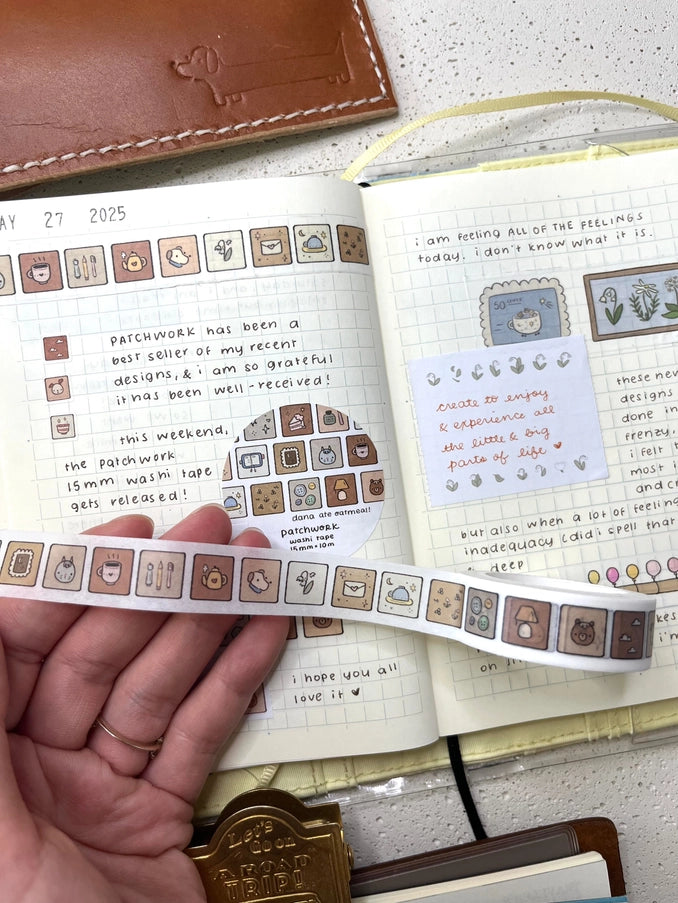 27 2025
PATCHWORK has been a
best seller of my recent
designs, & i am so grateful
it has been well-received!
this weekend,
the patchwork
15mm washi tape
gets released!
dana ate oatmeal!!
patchwork
washi tape
15mm × 10m
i hope you all
love it
i am feeling ALL OF THE FEELINGS
today. i don't know what it is.
50
create to enjoy
& experience all
the little & big
parts of life
these new
designs
done in
frenzy,
i felt
most i
and cr
but also when a lot of feeling
inadequacy (did i spell that
deep
i'm
on
Let's
Go on
A ROAD
TRIP!